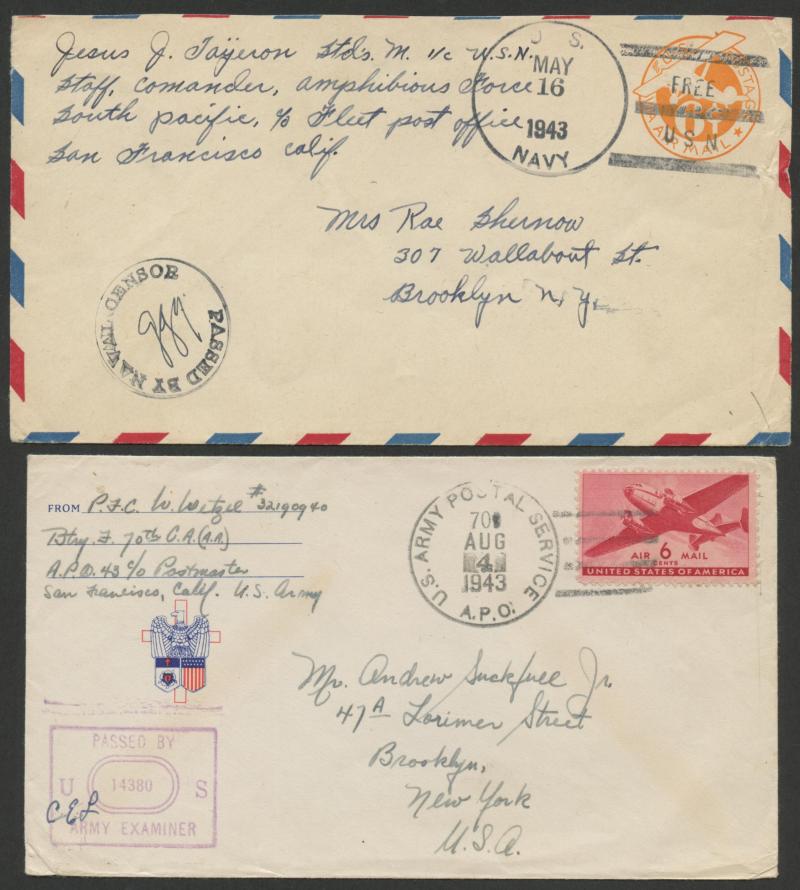 Jesus J. Tayeron Stds. M. 1/c U.S.N.
Staff, Comander, Amphibious Force
South Pacific, c/o Fleet post office
San Francisco Calif.
U. S.
MAY
16
1943
NAVY
FREE
U.S.N.
AIR MAIL
Mrs Rae Shernow
307 Wallabout St.
Brooklyn N.Y.
PASSED BY NAVAL CENSOR
FROM P.F.C. W. Wetzel # 32190940
Btry. F. 70th C.A.(A.A.)
A.P.O. 43 c/o Postmaster
San Francisco, Calif. U.S. Army
U.S. ARMY POSTAL SERVICE
AUG
4
1943
A.P.O.
AIR 6 MAIL
CENTS
UNITED STATES OF AMERICA
Mr. Andrew Suckfuel Jr.
47A Lorimer Street
Brooklyn,
New York
U.S.A.
PASSED BY
U 14380 S
ARMY EXAMINER
CEL